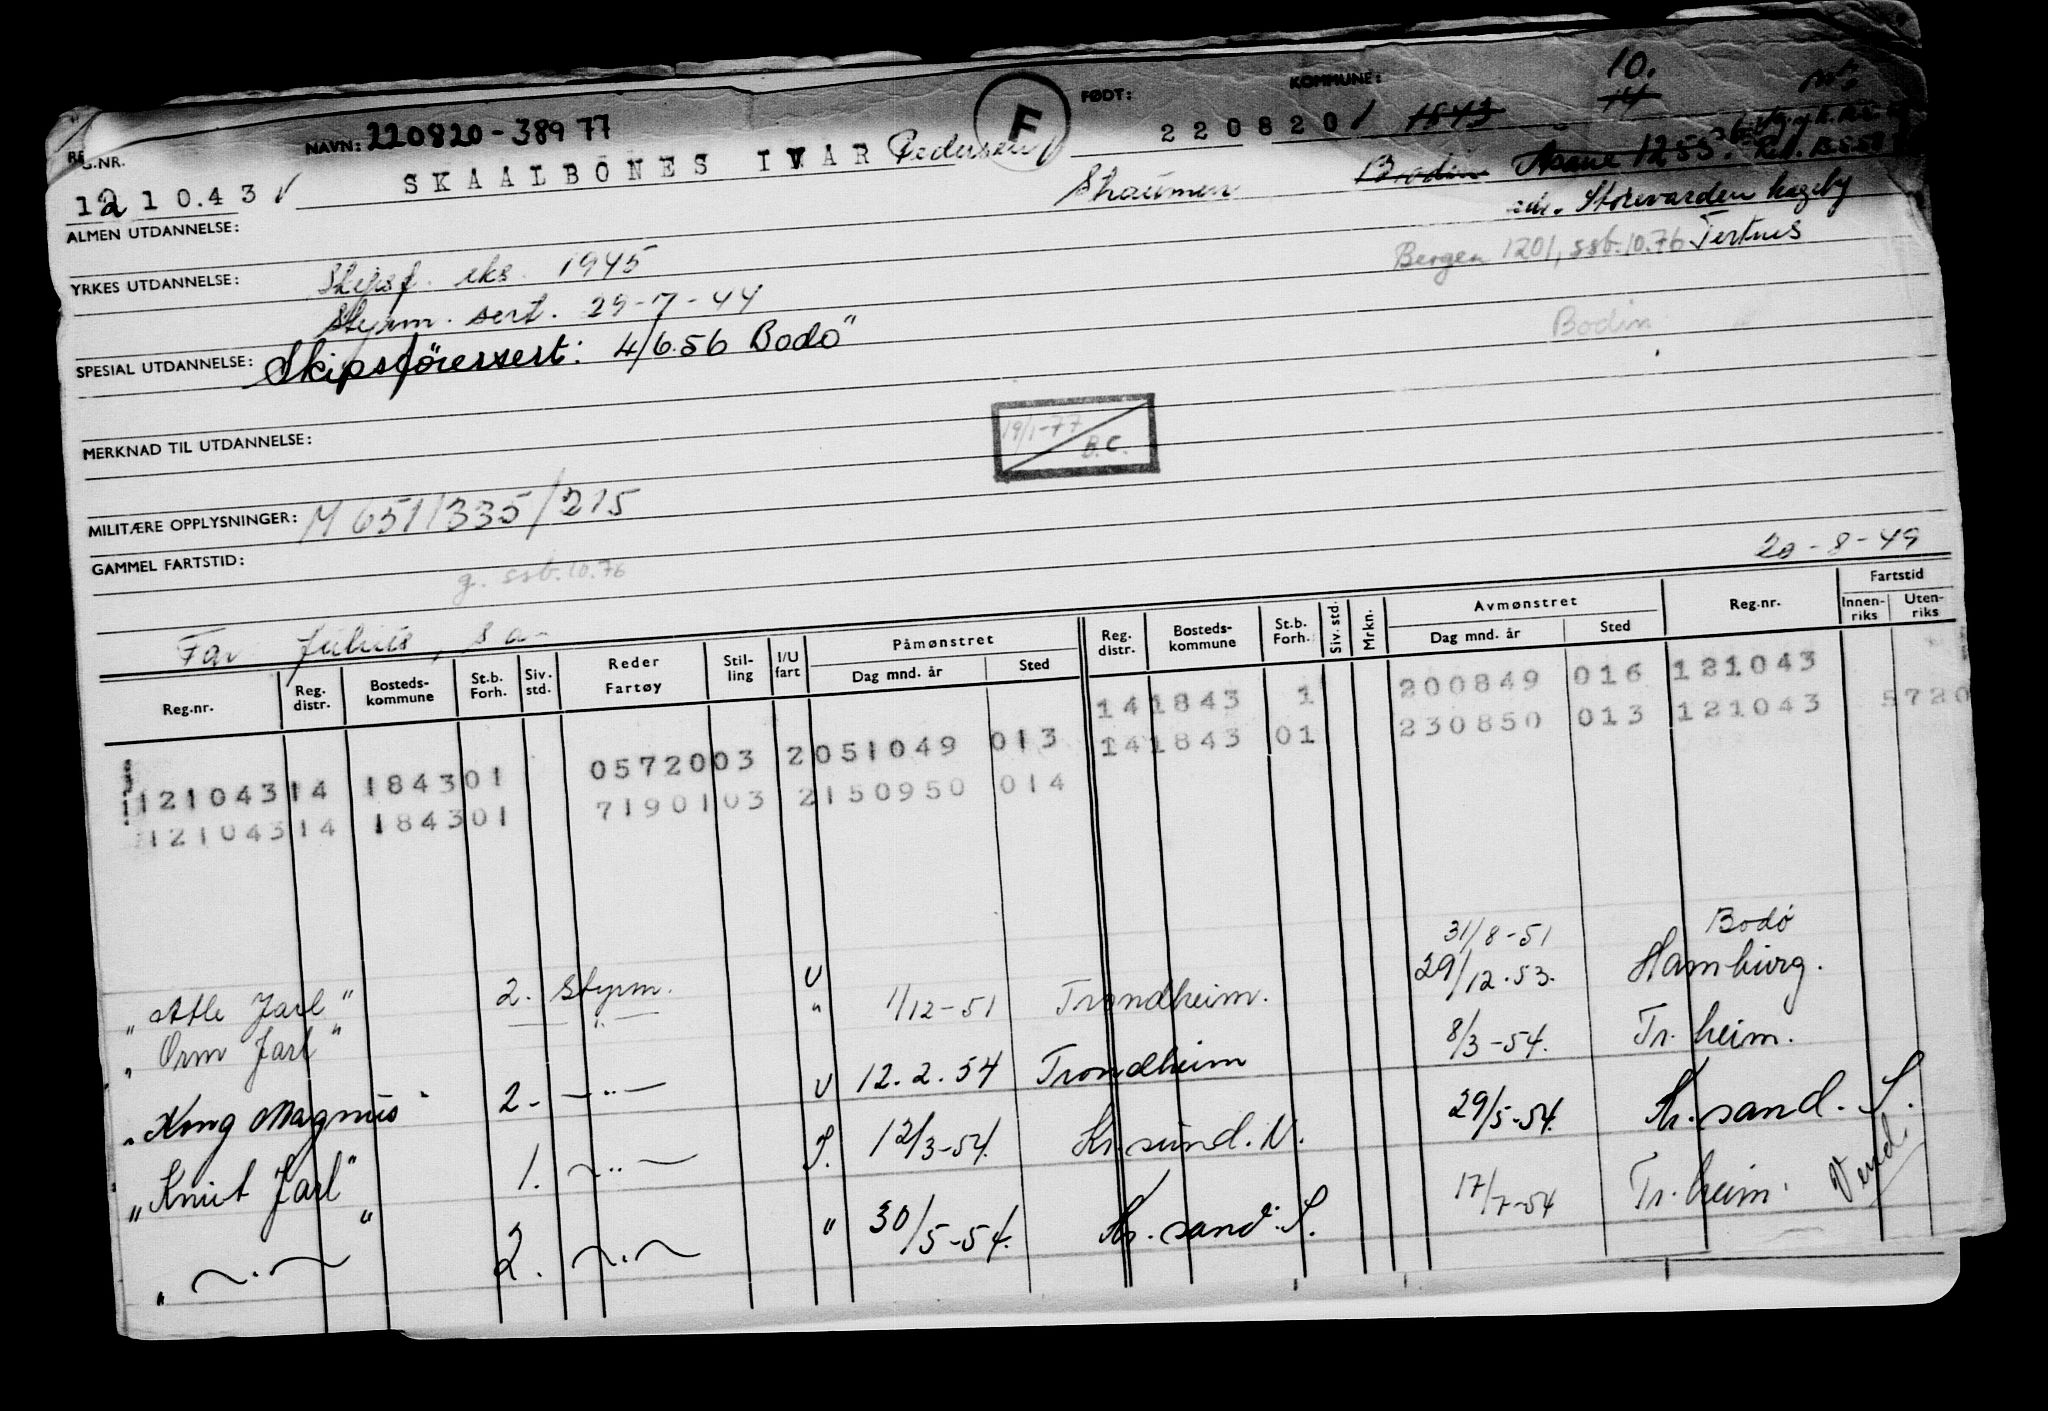 10.
FØDT: KOMMUNE:
F
NAVN: 220820-38977
REG.NR. SKAALBÖNES IVAR Pedersen 220820 1843
121043 Bodin Åsane 1255
adr. Storevarden hageby
ALMEN UTDANNELSE: Bergen 1201, ssb.10.76 Tertnes
YRKES UTDANNELSE: Skipsf. eks. 1945
Styrm. sert. 29-7-44 Bodin
SPESIAL UTDANNELSE: Skipsförersert: 4/6.56 Bodö
19/1-77 B.C.
MERKNAD TIL UTDANNELSE:
MILITÆRE OPPLYSNINGER: M 651/335/215
GAMMEL FARTSTID: g. ssb.10.76
20-8-49
Far Julius, s a-
Reg.nr. Reg. distr. Bosteds- kommune St.b. Forh. Siv. std. Reder Fartøy Stil- ling I/U fart Påmønstret Dag mnd. år Sted Reg. distr. Bosteds- kommune St.b. Forh. Siv. std. Mrkn. Avmønstret Dag mnd. år Sted Reg.nr. Fartstid Innen- riks Uten- riks
141843 1 200849 016 121043
12104314 184301 0572003 2051049 013 141843 01 230850 013 121043 5720
12104314 184301 7190103 2150950 014
31/8-51 Bodö
" Atle Jarl" 2. Styrm. U 29/12.53. Hamburg.
" Orm Jarl" — " — " 1/12-51 Trondheim. 8/3-54. Tr.heim.
" Kong Magnus" 2. — " — U 12.2.54 Trondheim 29/5-54. Kr.sand. S.
" Knut Jarl" 1. — " — I. 12/3-54. Kr.sund. N. 17/7-54 Tr.heim.
" — " — " 2. — " — " 30/5-54. Kr.sand. S. Vend.